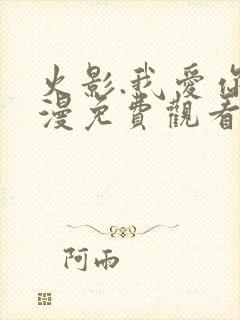 火影.我愛你
漫免費觀看
阿雨